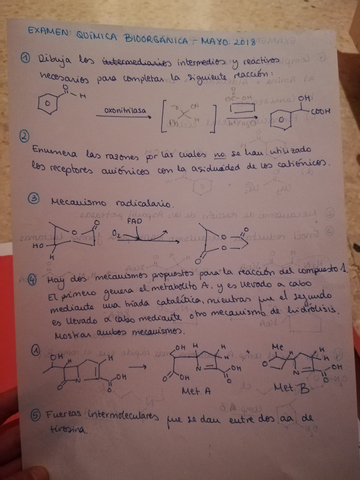 EXAMEN: QUÍMICA BIOORGÁNICA - MAYO 2018
① Dibuja los intermediarios intermedios y reactivos
necesarios para completar la siguiente reacción:
O
H
oxonitrilasa
OH
COOH
②
Enumera las razones por las cuales no se han utilizado
los receptores aniónicos con la asiduidad de los catiónicos.
③ Mecanismo radicalario.
O
O
HO
H
O₂
FAD
O
O
O
④ Hay dos mecanismos propuestos para la reacción del compuesto 1.
El primero genera el metabolito A, y es llevado a cabo
mediante una tríada catalítica, mientras que el segundo
es llevado a cabo mediante otro mecanismo de hidrólisis.
Mostrar ambos mecanismos.
①
OH
N
O
OH
OH
N
OH
Met A
Me
N
OH
Met B
⑤ Fuerzas intermoleculares que se dan entre dos aa. de
tirosina